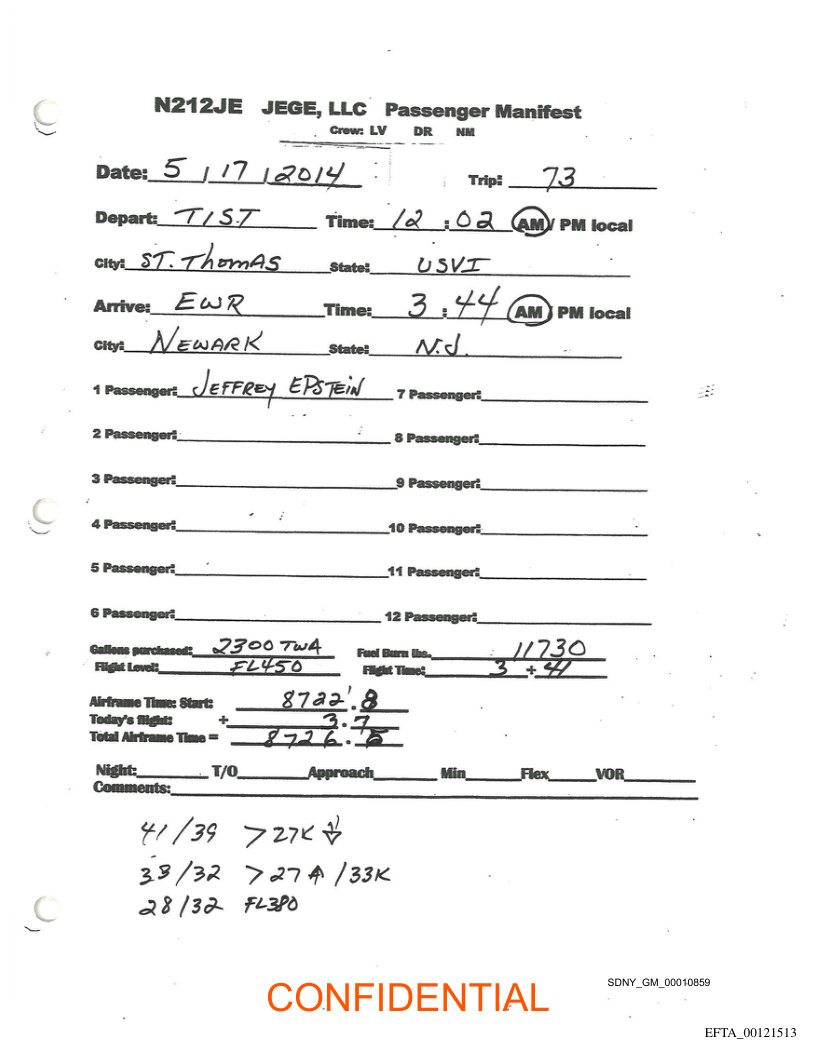 N212JE JEGE, LLC Passenger Manifest
Crew: LV DR NM
Date: 5 / 17 / 2014 Trip: 73
Depart: TIST Time: 12 : 02 AM / PM local
City: ST. THOMAS State: USVI
Arrive: EWR Time: 3 : 44 AM / PM local
City: NEWARK State: N.J.
1 Passenger: JEFFREY EPSTEIN 7 Passenger:
2 Passenger: 8 Passenger:
3 Passenger: 9 Passenger:
4 Passenger: 10 Passenger:
5 Passenger: 11 Passenger:
6 Passenger: 12 Passenger:
Gallons purchased: 2300 TWA Fuel Burn lbs. 11730
Flight Level: FL450 Flight Time: 3 + 41
Airframe Time: Start: 8722.8
Today's flight: + 3.7
Total Airframe Time = 8726.5
Night: T/O Approach Min Flex VOR
Comments:
41/39 >27K ↓
33/32 >27 ↑ /33K
28/32 FL380
SDNY_GM_00010859
CONFIDENTIAL
EFTA_00121513